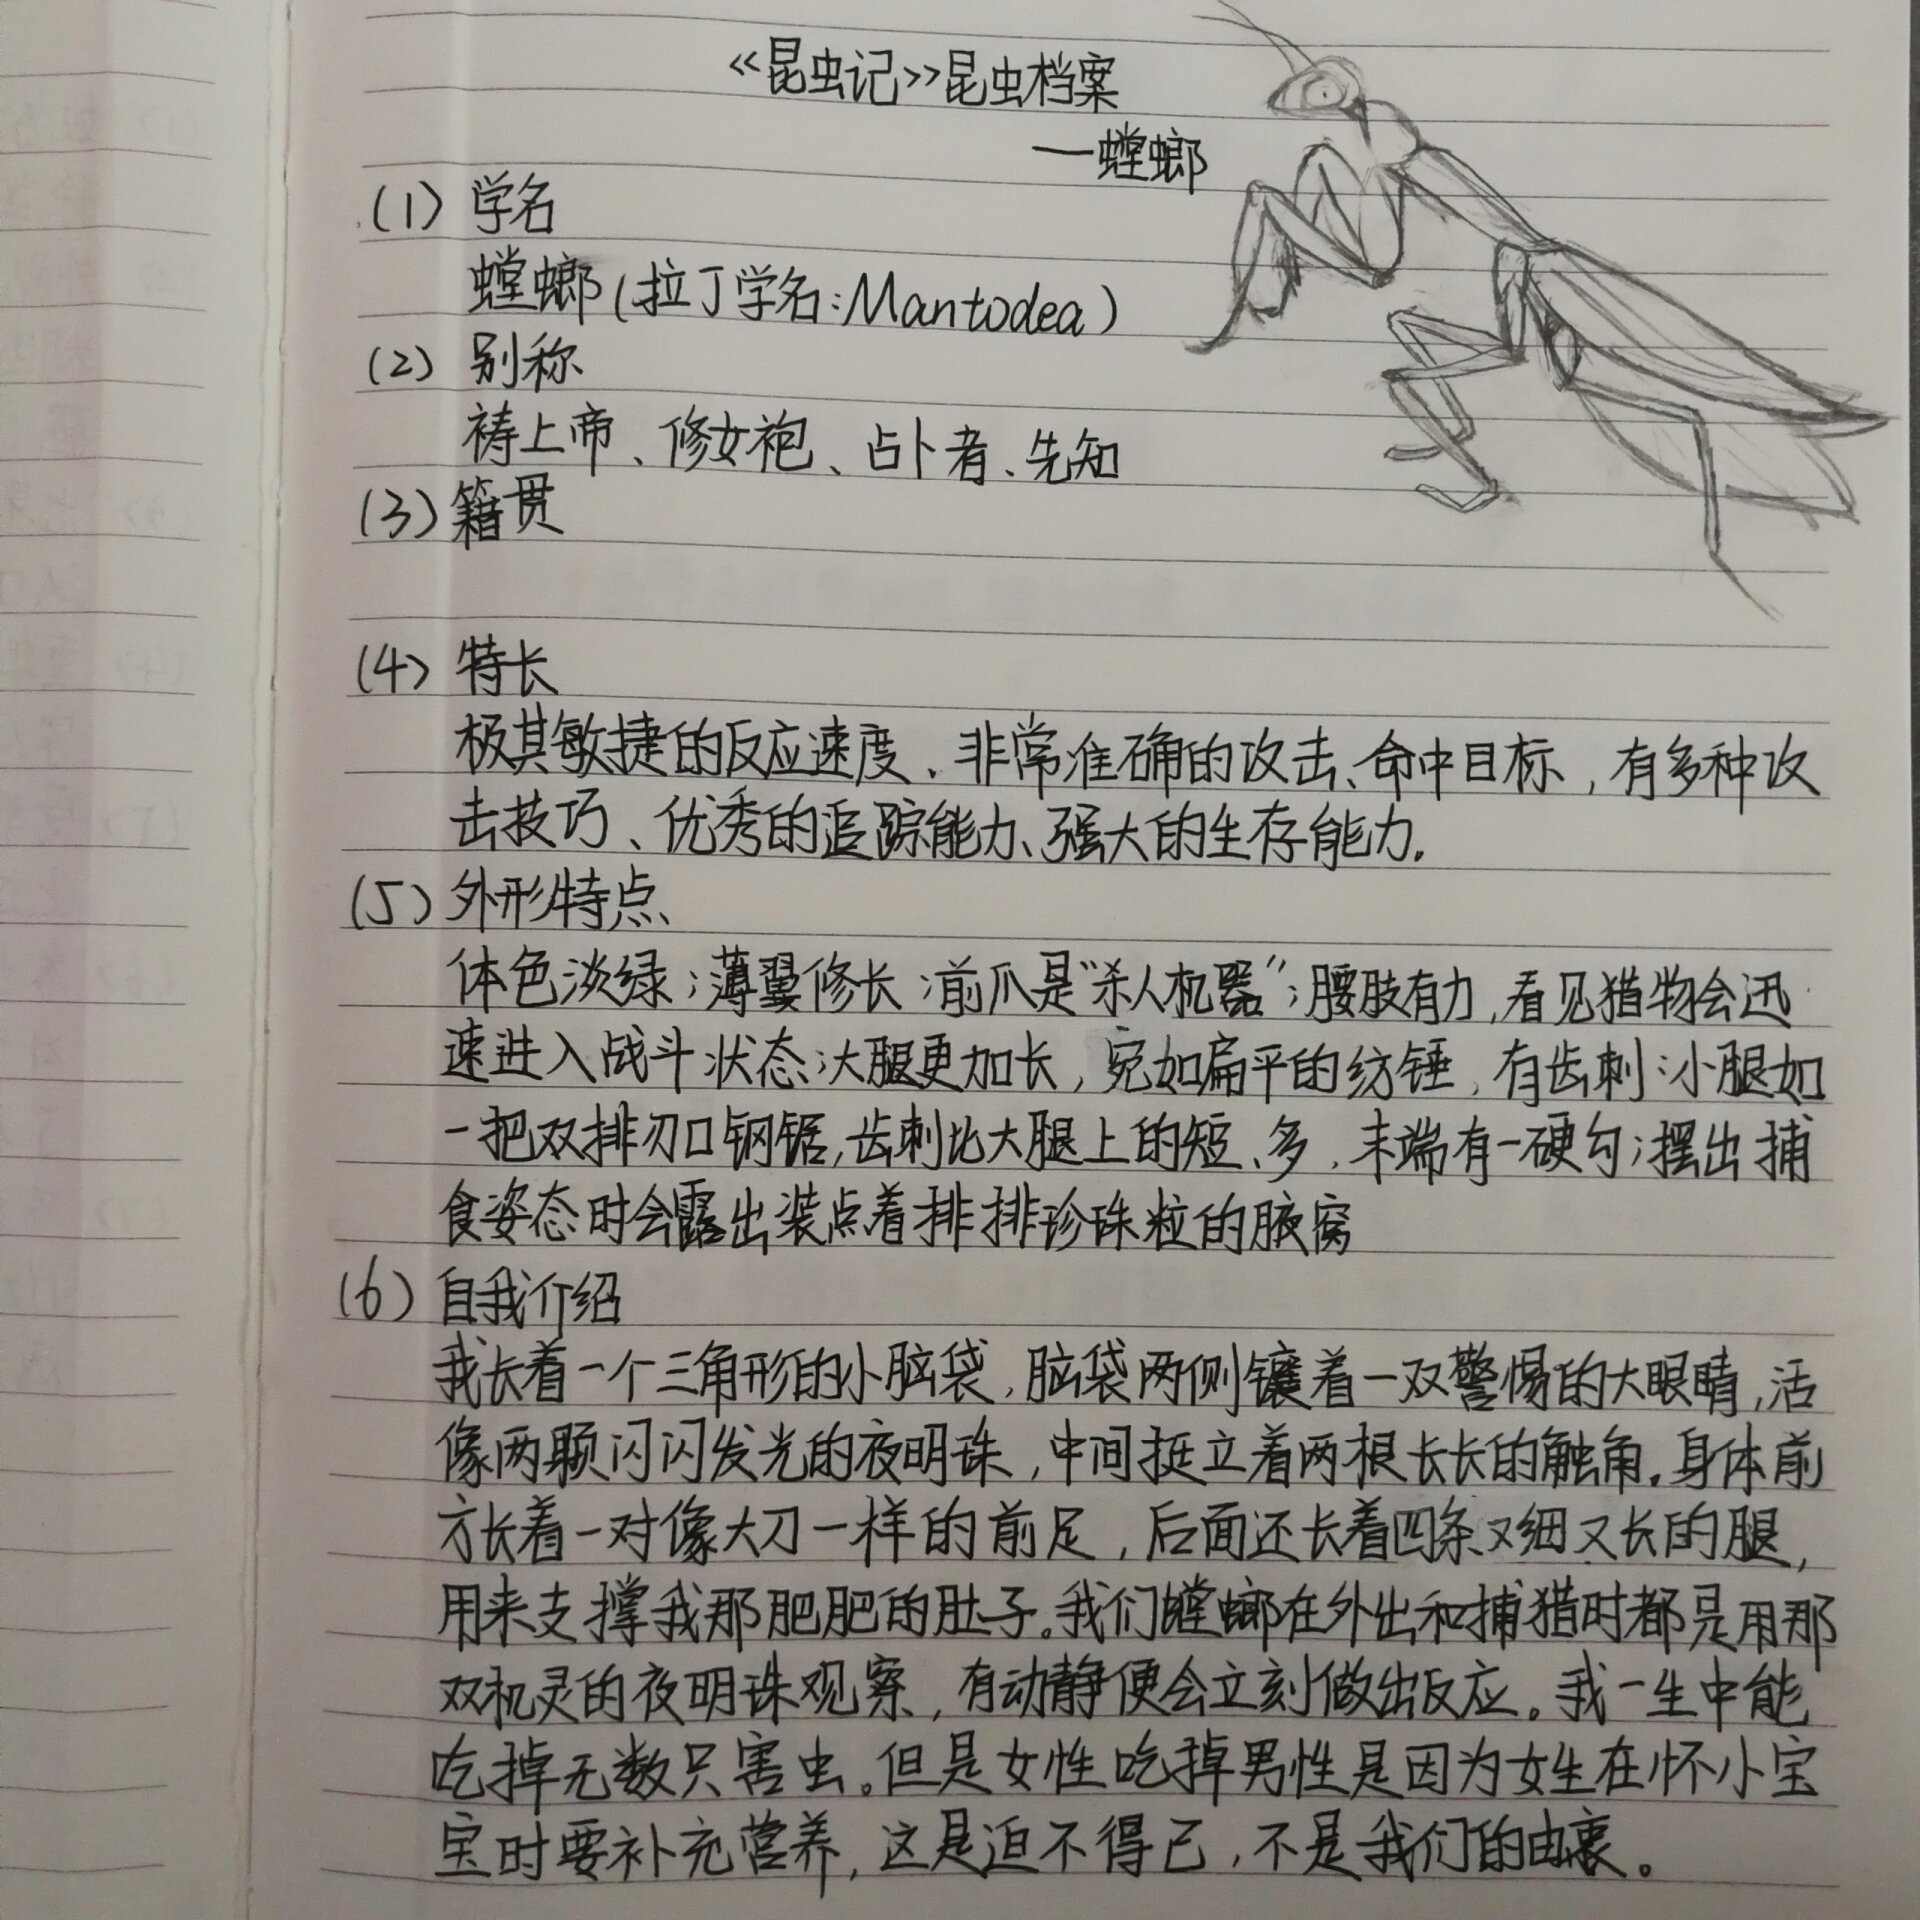 《昆虫记》昆虫档案
—螳螂
(1) 学名
螳螂(拉丁学名:Mantodea)
(2) 别称
祷上帝、修女袍、占卜者、先知
(3) 籍贯
(4) 特长
极其敏捷的反应速度、非常准确的攻击、命中目标,有多种攻
击技巧、优秀的追踪能力、强大的生存能力.
(5) 外形特点
体色淡绿;薄翼修长;前爪是“杀人机器”;腰肢有力,看见猎物会迅
速进入战斗状态;大腿更加长,宛如扁平的纺锤,有齿刺;小腿如
一把双排刃口钢锯,齿刺比大腿上的短、多,末端有一硬勾;摆出捕
食姿态时会露出装点着排排珍珠粒的腋窝
(6) 自我介绍
我长着一个三角形的小脑袋,脑袋两侧镶着一双警惕的大眼睛,活
像两颗闪闪发光的夜明珠,中间挺立着两根长长的触角.身体前
方长着一对像大刀一样的前足,后面还长着四条又细又长的腿,
用来支撑我那肥肥的肚子。我们螳螂在外出和捕猎时都是用那
双机灵的夜明珠观察,有动静便会立刻做出反应。我一生中能
吃掉无数只害虫。但是女性吃掉男性是因为女生在怀小宝
宝时要补充营养,这是迫不得已,不是我们的由衷。